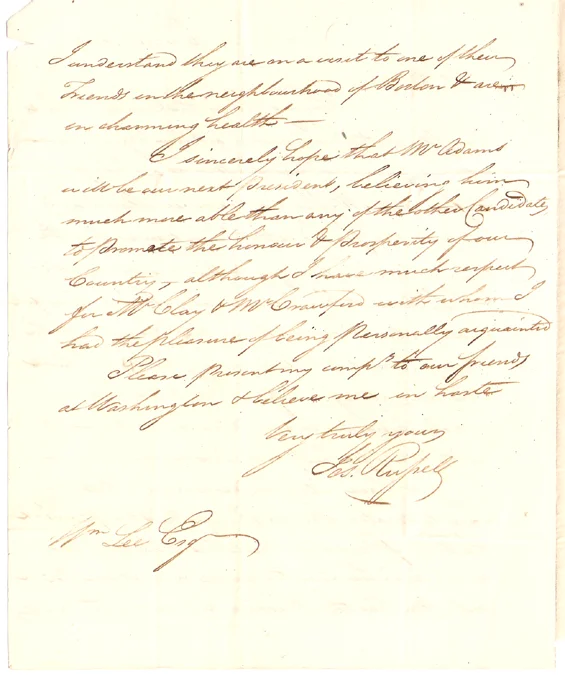 I understand they are on a visit to one of their
Friends in the neighbourhood of Boston & are
in charming health —
I sincerely hope that Mr Adams
will be our next President, believing him
much more able than any of the other Candidates
to promote the honour & prosperity of our
Country, although I have much respect
for Mr Clay & Mr Crawford with whom I
had the pleasure of being Personally acquainted
Please present my comps to our friends
at Washington & believe me in haste
Very truly yours
Jos. Russell
Wm Lee Esqr